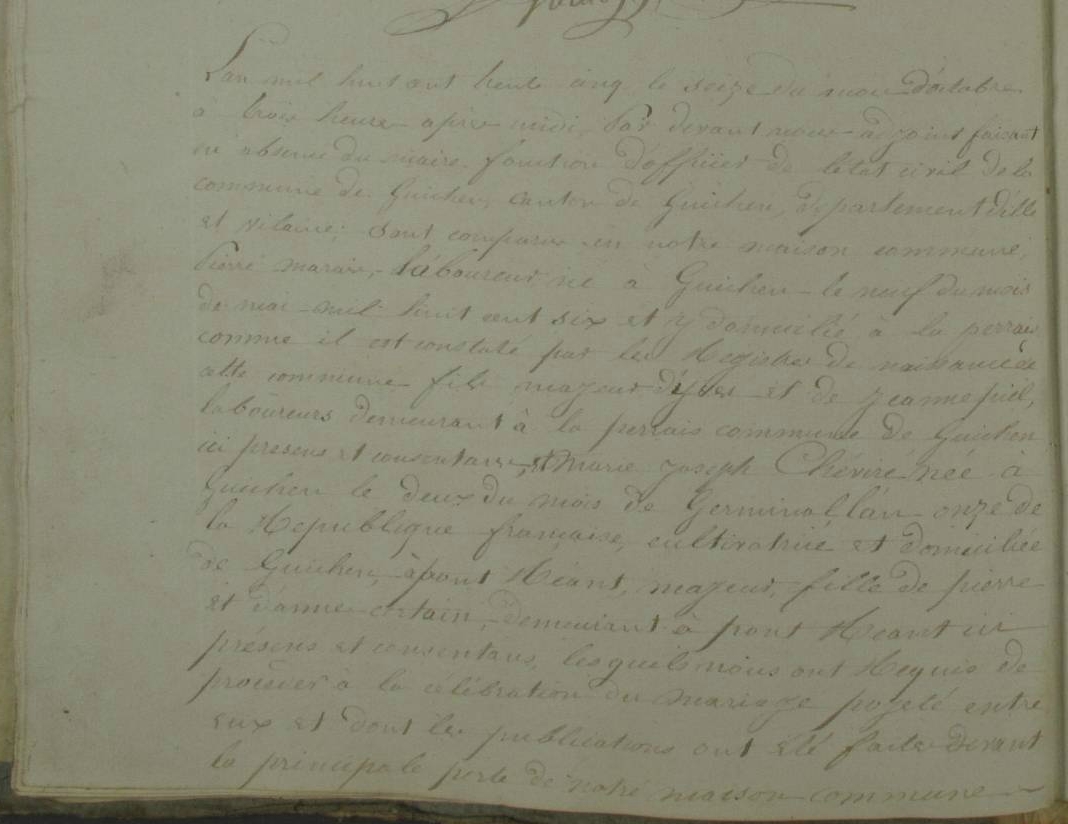 Lan mil huit cent trente cinq le seize du mois d'octobre
à trois heure apres midi, Par devant nous adjoint faisant
en absence du maire fonction d'officier de letat civil de la
commune de Guichen, canton de Guichen, departement d'ille
et vilaine; Sont comparus en notre maison commune,
Pierre marais, laboureur né à Guichen le neuf du mois
de mai mil huit cent six et y domicilié à la perrais
comme il est constaté par les Registres de naissance de
cette commune fils majeur d'yves et de jeanne piel,
laboureurs demeurant à la perrais commune de Guichen
ici presens et consentans, et Marie joseph Chévrre née à
Guichen le deux du mois de Germinal l'an onze de
la Republique française, cultivatrice et domiciliée
de Guichen, à pont Réant, majeur, fille de pierre
et d'anne certain, demeurant à pont Réant ici
présens et consentans, lesquels nous ont Requis de
procéder à la célébration du mariage projeté entre
eux et dont les publications ont été faites devant
la principale porte de notre maison commune